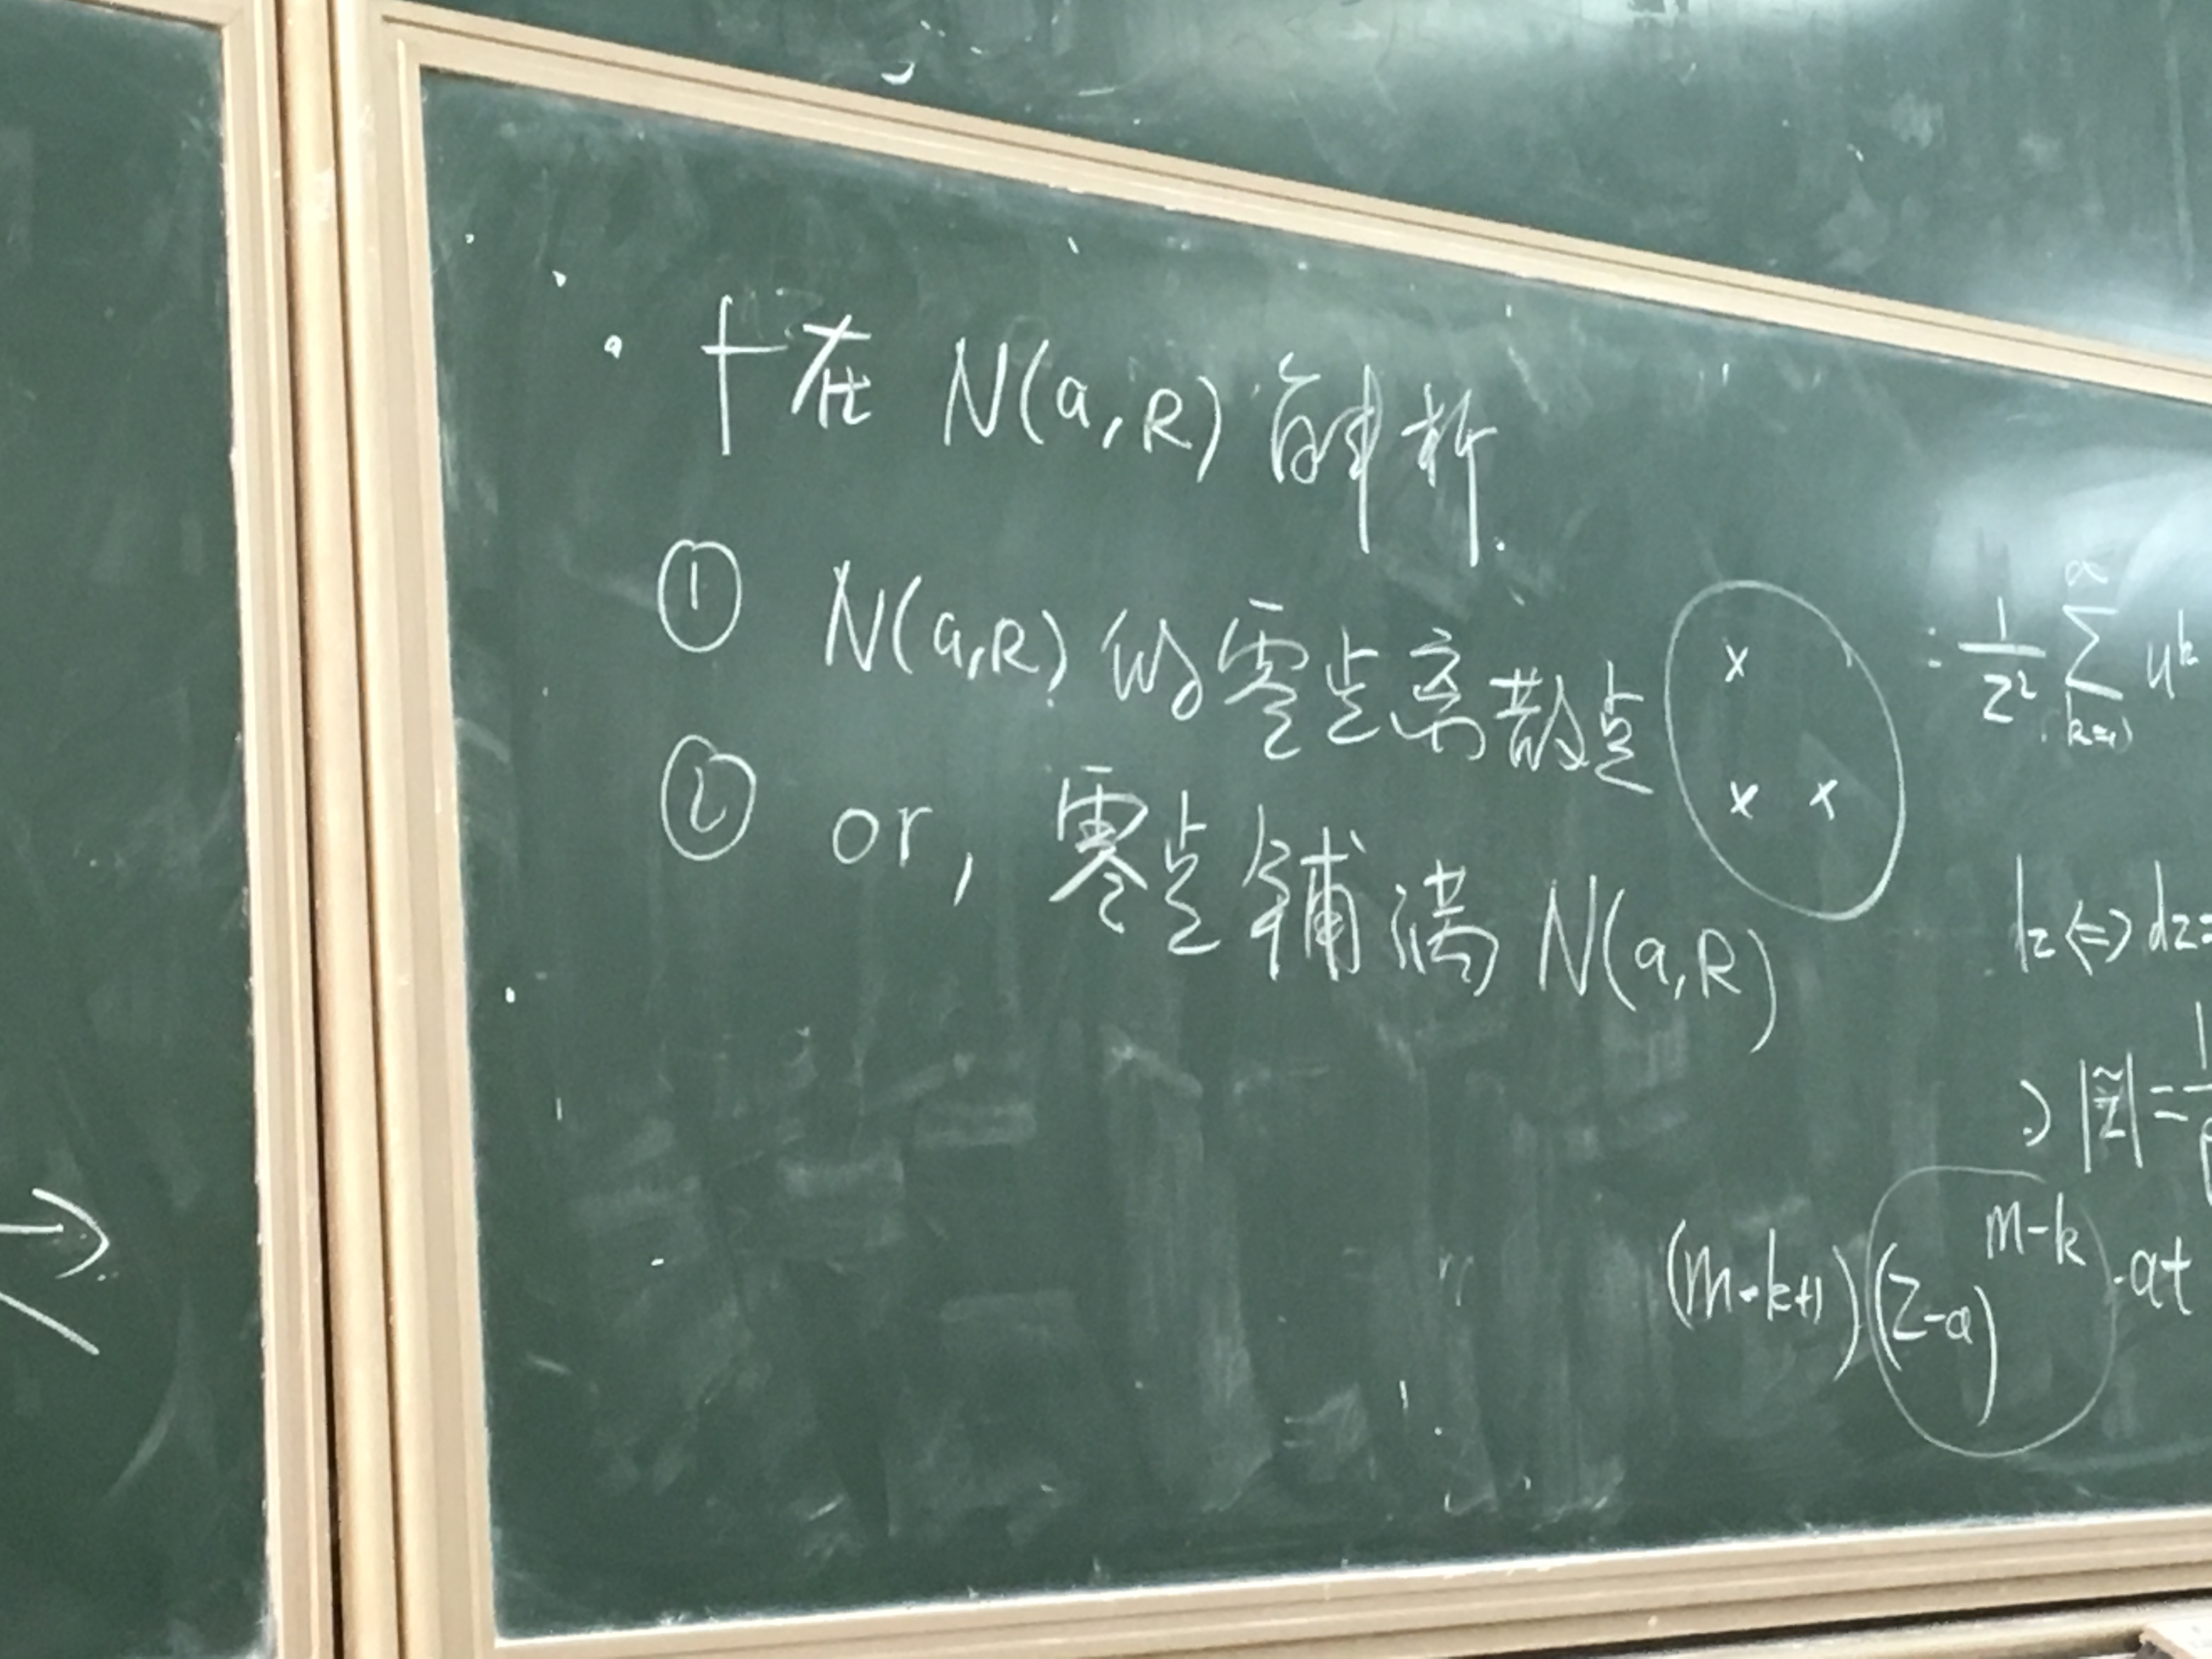 f在 N(a,R) 解析.
① N(a,R) 的零点离散点
② or, 零点铺满 N(a,R)
= 1/z² ∑ u^k
dz=
⇒ |z̃| =
(m-k+1)(z-a)^{m-k} . at